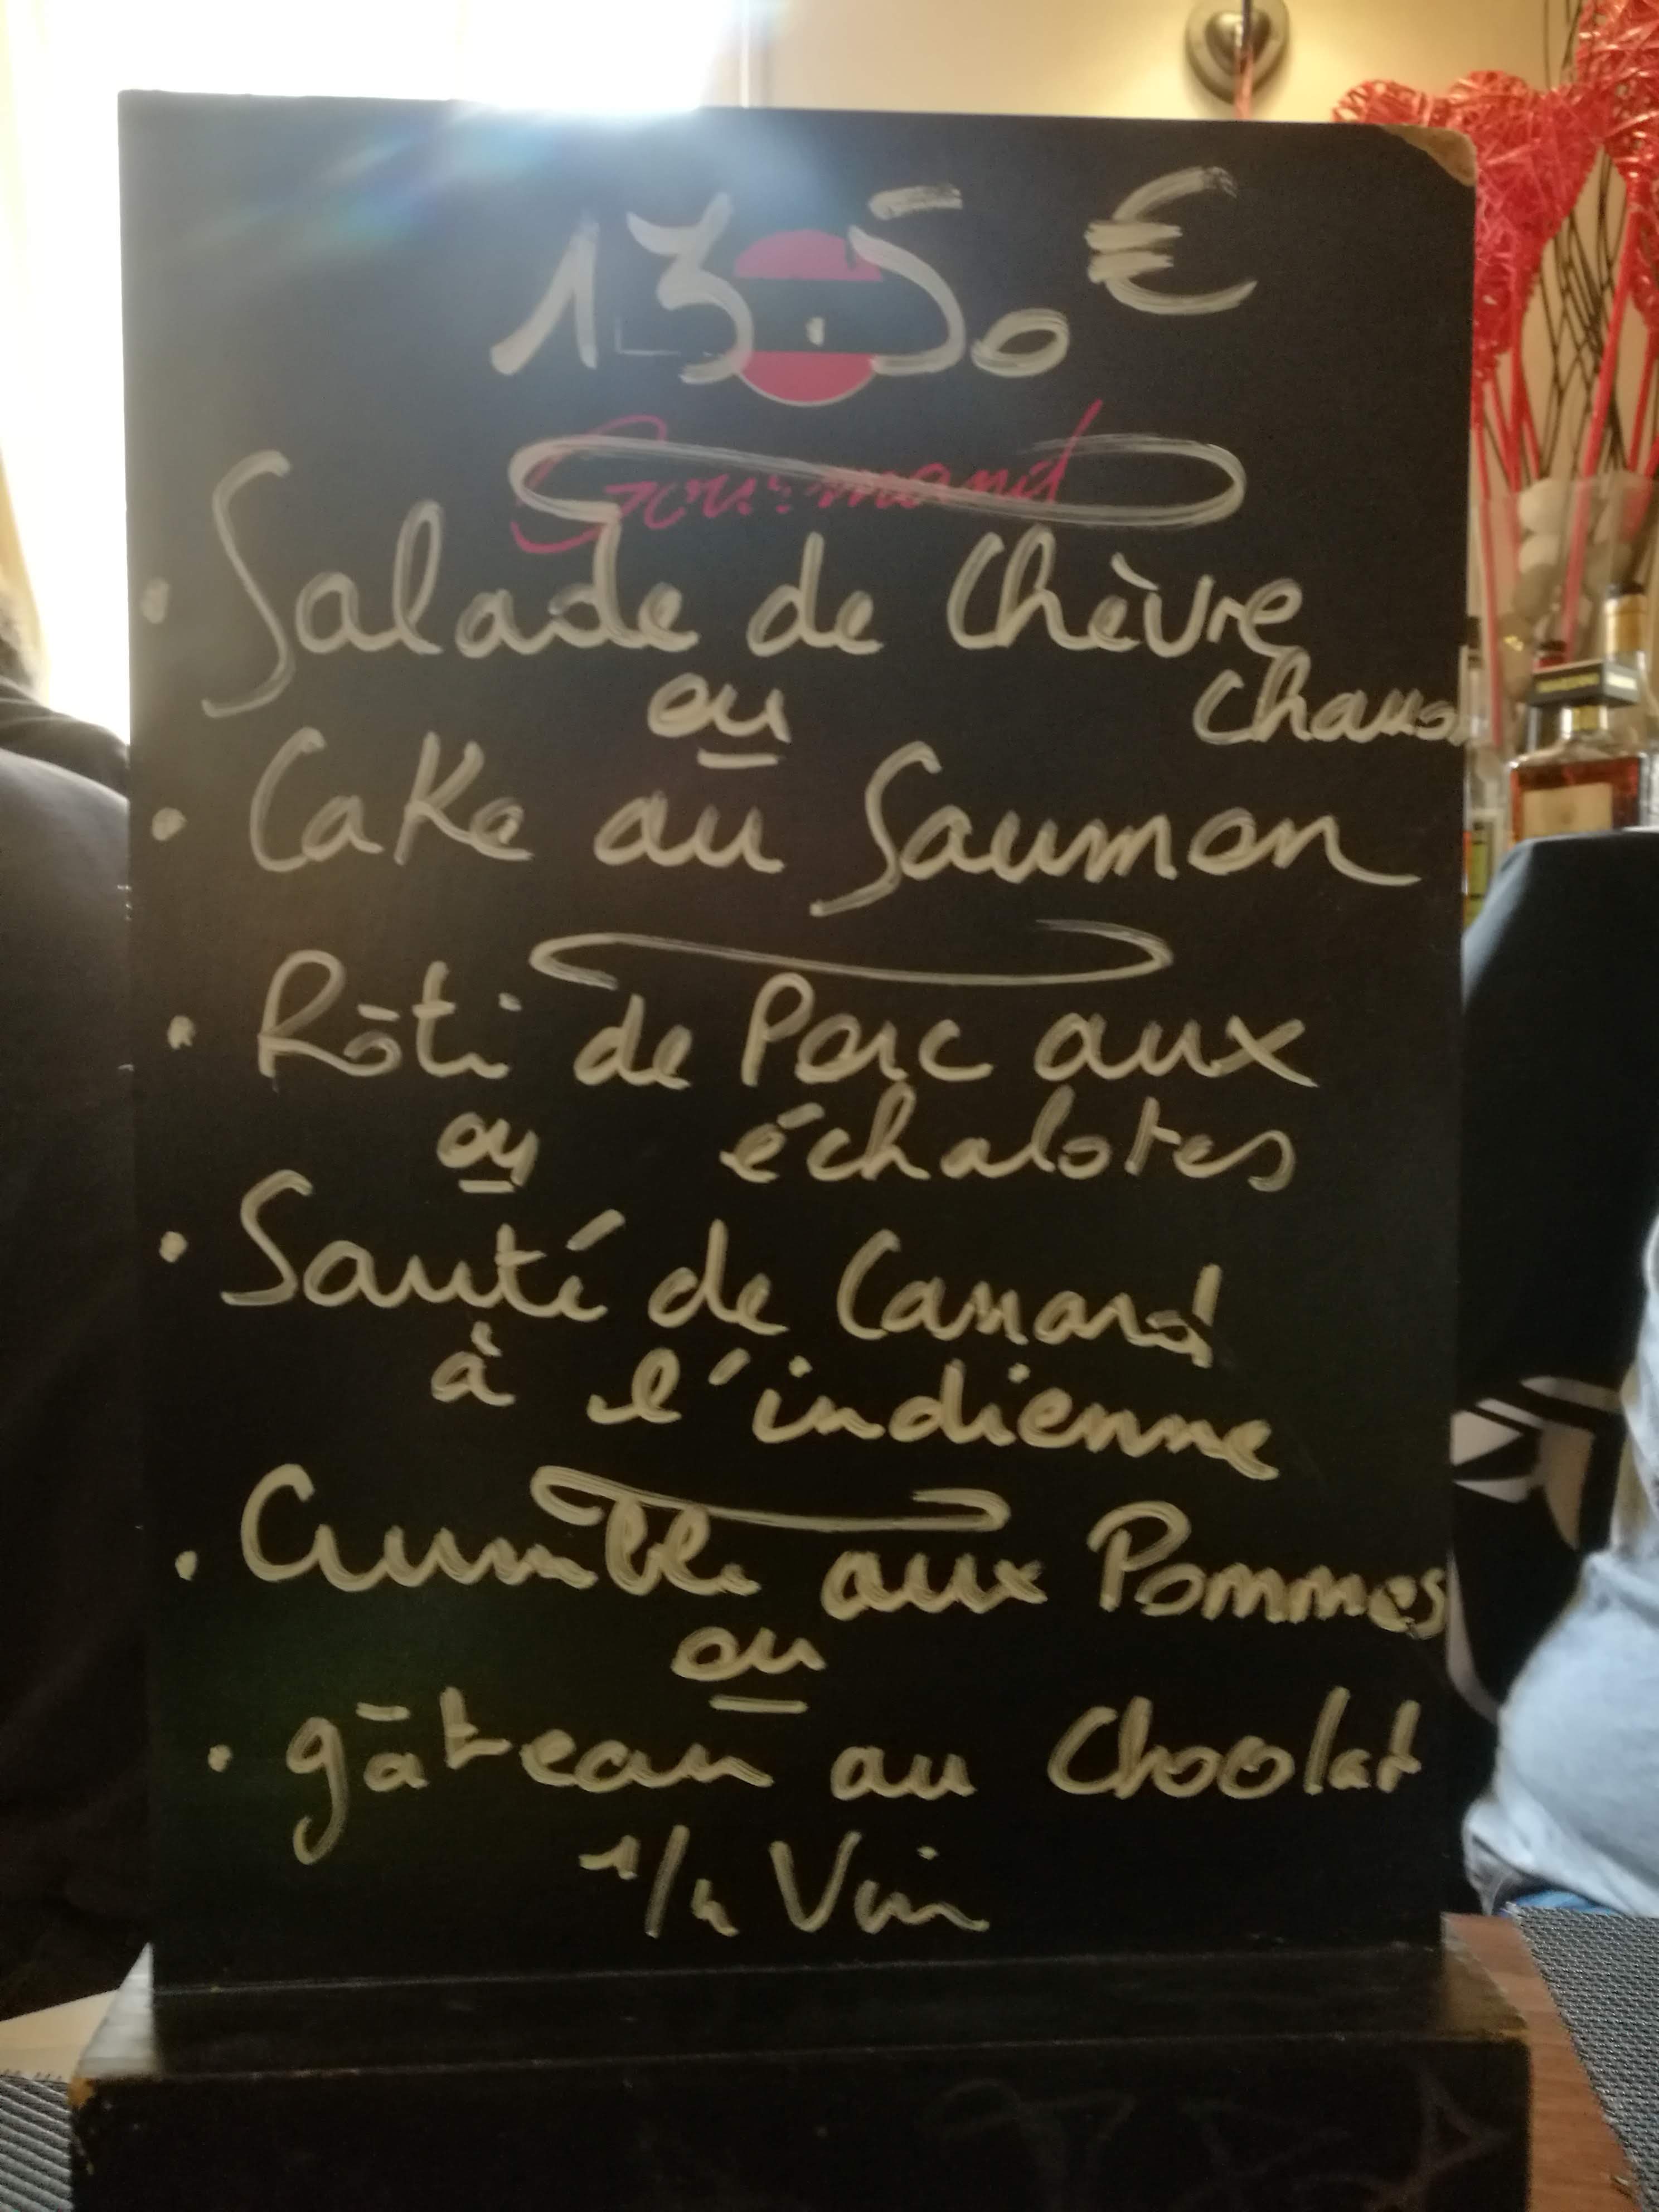 13.50 €
Gourmand
• Salade de Chèvre
ou chaud
• Cake au Saumon
• Rôti de Porc aux
ou échalotes
• Sauté de Canard
à l'indienne
• Crumble aux Pommes
ou
• gâteau au Chocolat
1/4 Vin